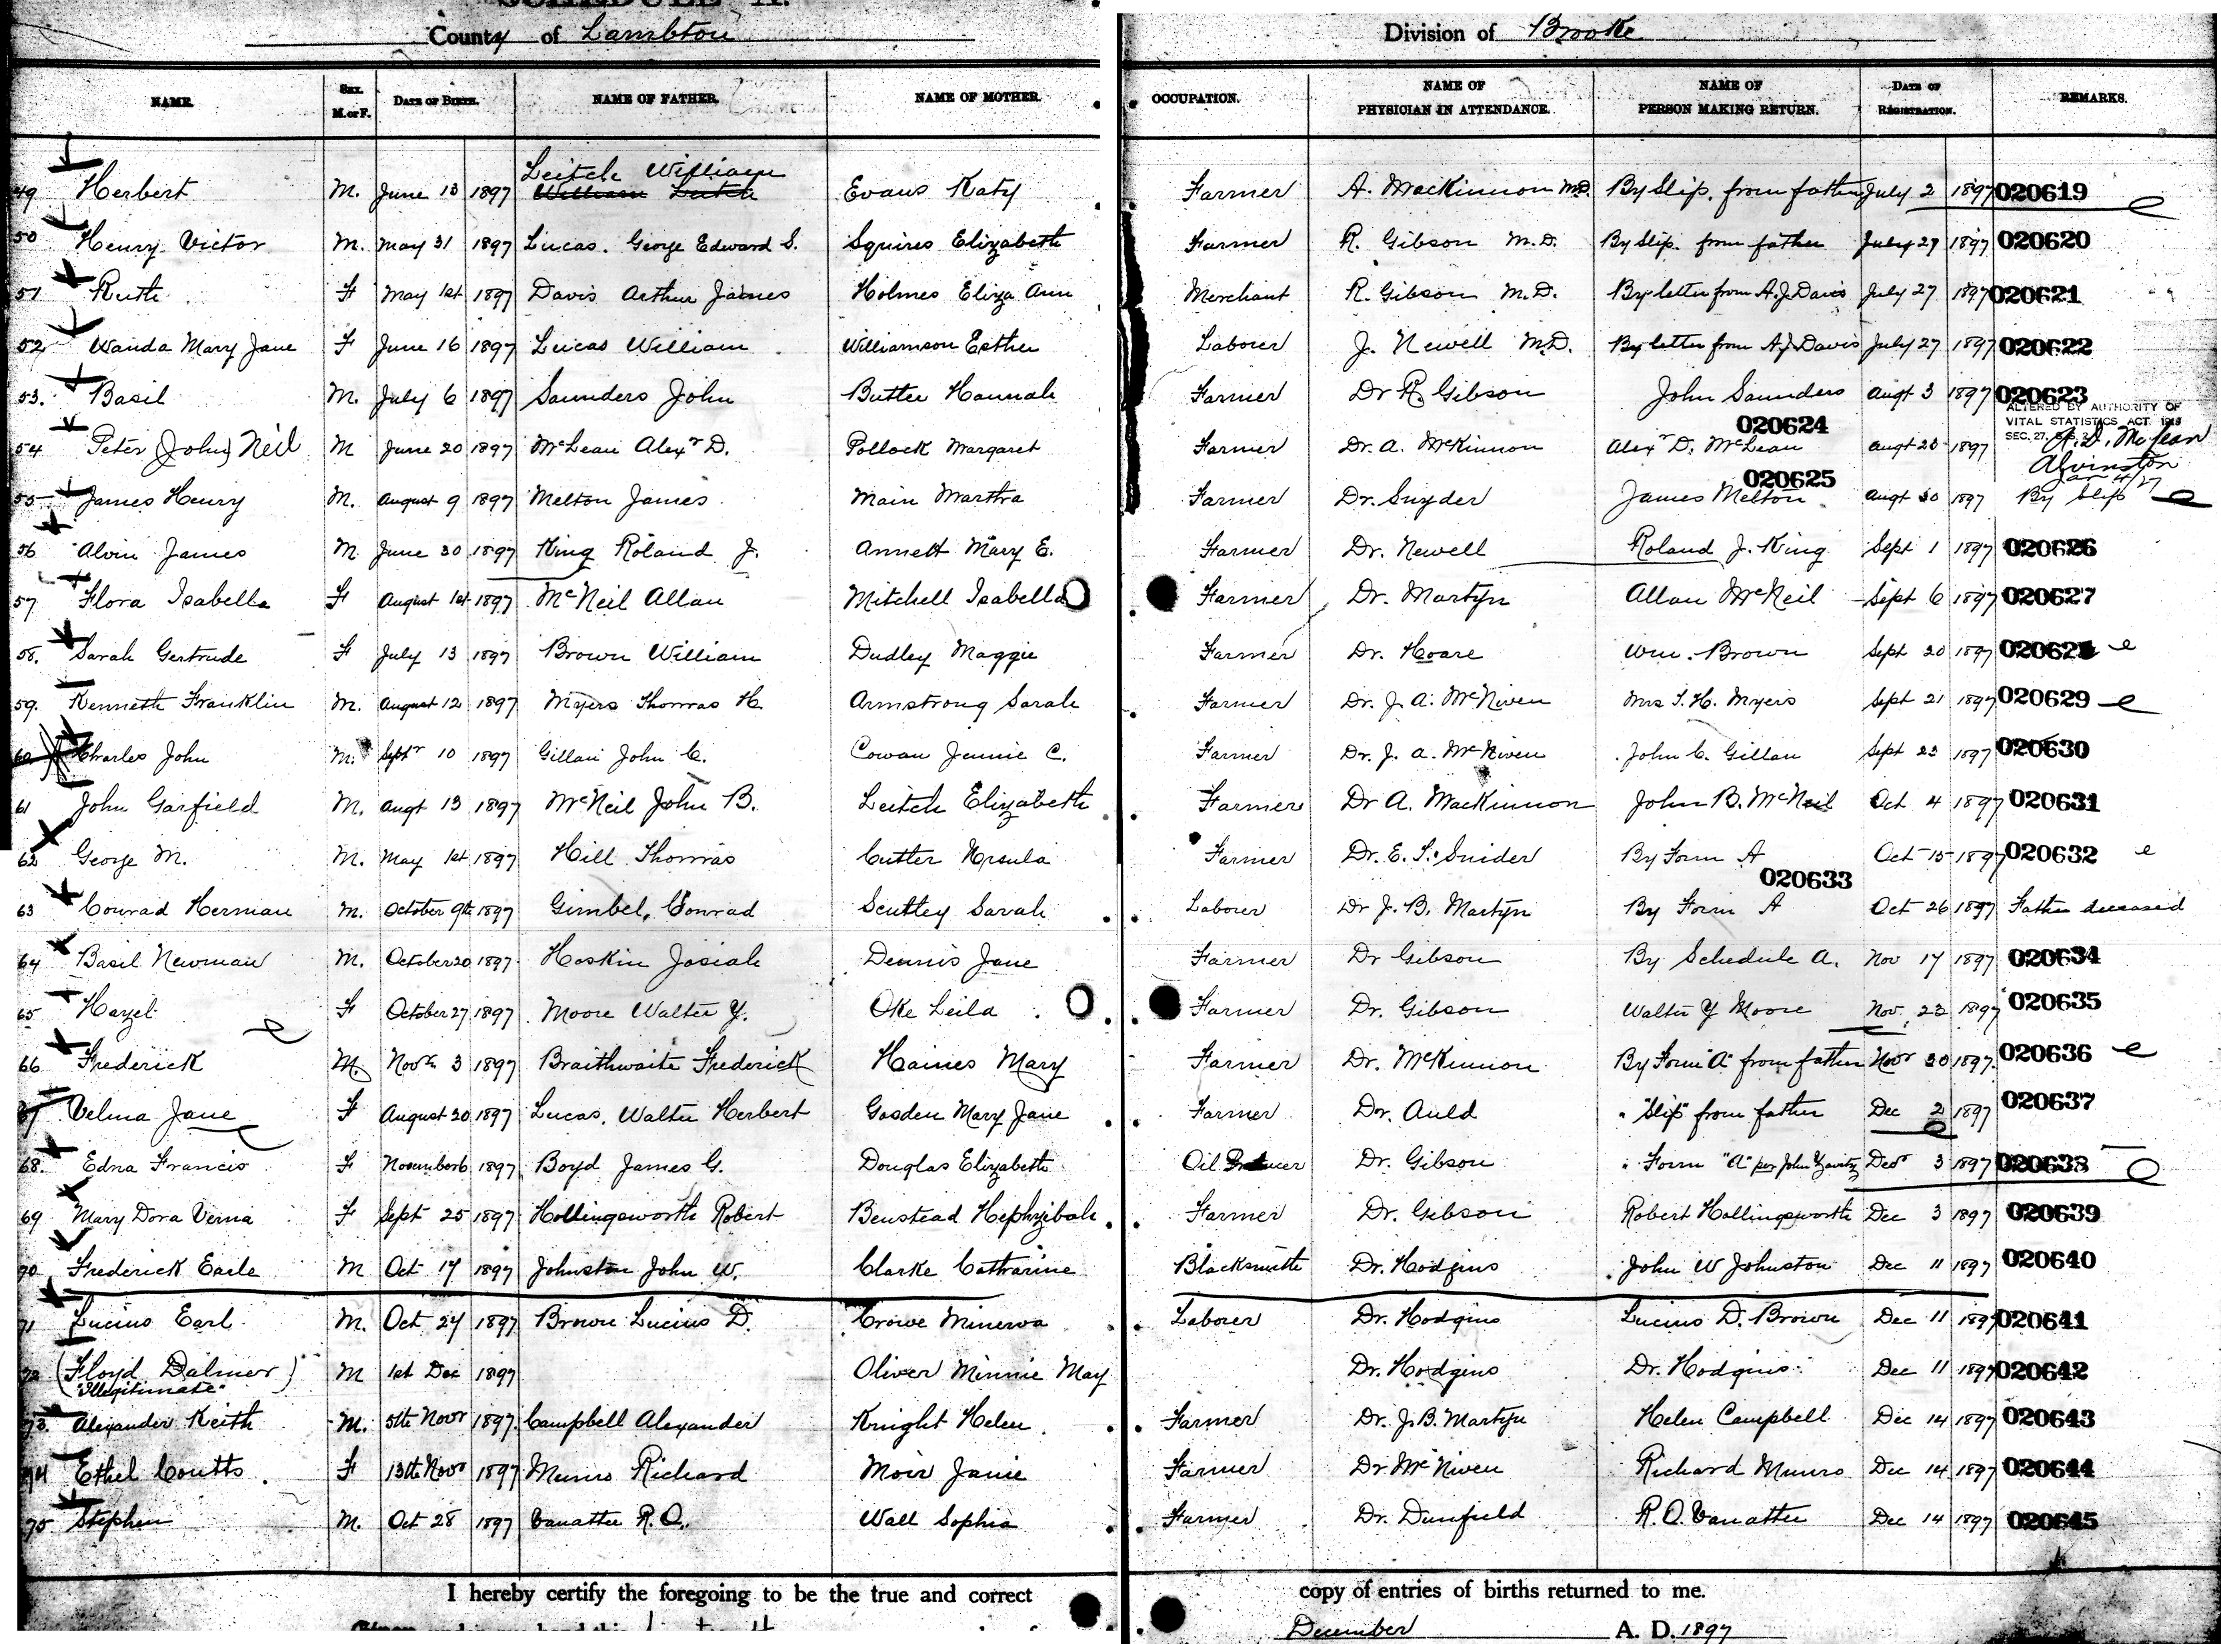 SCHEDULE A.
County of Lambton Division of Brooke
NAME. SEX. M. or F. DATE OF BIRTH. NAME OF FATHER. NAME OF MOTHER. OCCUPATION. NAME OF PHYSICIAN IN ATTENDANCE. NAME OF PERSON MAKING RETURN. DATE OF REGISTRATION. REMARKS.
Leitch William
49 Herbert M. June 13 1897 William Leitch Evans Katy Farmer A. MacKinnon M.D. By Slip. from father July 2 1897 020619
50 Henry Victor M. May 31 1897 Lucas. George Edward S. Squires Elizabeth Farmer R. Gibson M.D. By Slip. from father July 27 1897 020620
51 Ruth F May 1st 1897 Davis Arthur James Holmes Eliza Ann Merchant R. Gibson M.D. By letter from A.J. Davis July 27 1897 020621
52 Wanda Mary Jane F June 16 1897 Lucas William Williamson Esther Laborer J. Newell M.D. By letter from A.J. Davis July 27 1897 020622
53. Basil M. July 6 1897 Saunders John Butler Hannah Farmer Dr R. Gibson John Saunders Augt 3 1897 020623
ALTERED BY AUTHORITY OF
VITAL STATISTICS ACT 1919
020624
54 Peter (John) Neil M June 20 1897 McLean Alexr D. Pollock Margaret Farmer Dr. A. McKinnon Alexr D. McLean Augt 20 1897 SEC. 27, A. D. McLean
Alvinston
Jan 4/27
020625
55 James Henry M. August 9 1897 Melton James Main Martha Farmer Dr. Snyder James Melton Augt 30 1897 By Slip
56 Alvin James M June 30 1897 King Roland J. Annett Mary E. Farmer Dr. Newell Roland J. King Sept 1 1897 020626
57 Flora Isabella F August 1st 1897 McNeil Allan Mitchell Isabella Farmer Dr. Martyn Allan McNeil Sept 6 1897 020627
58. Sarah Gertrude F July 13 1897 Brown William Dudley Maggie Farmer Dr. Hoare Wm. Brown Sept 20 1897 020628
59. Kenneth Franklin M. August 12 1897 Myers Thomas H. Armstrong Sarah Farmer Dr. J. A. McNiven Mrs T. H. Myers Sept 21 1897 020629
60 Charles John M. Septr 10 1897 Gillan John C. Cowan Jennie C. Farmer Dr. J. A. McNiven John C. Gillan Sept 23 1897 020630
61 John Garfield M. Augt 13 1897 McNeil John B. Leitch Elizabeth Farmer Dr A. MacKinnon John B. McNeil Oct 4 1897 020631
62 George M. M. May 1st 1897 Hill Thomas Cutler Ursula Farmer Dr. E. T. Snider By Form A Oct 15 1897 020632
020633
63 Conrad Herman M. October 9th 1897 Gimbel, Conrad Sarah Laborer Dr J. B. Martyn By Form A Oct 26 1897 Father deceased
64 Basil Newman M. October 20 1897 Hoskin Josiah Dennis Jane Farmer Dr Gibson By Schedule A. Nov 17 1897 020634
65 Hazel F October 27 1897 Moore Walter Y. Oke Leila Farmer Dr. Gibson Walter Y Moore Nov. 22 1897 020635
66 Frederick M Novr 3 1897 Braithwaite Frederick Haines Mary Farmer Dr. McKinnon By Form "A" from father Novr 30 1897 020636
67 Velma Jane F August 20 1897 Lucas, Walter Herbert Gosden Mary Jane Farmer Dr. Auld " "Slip" from father Dec 2 1897 020637
68. Edna Francis F November 6 1897 Boyd James G. Douglas Elizabeth Oil Producer Dr. Gibson " Form "A" per John Decr 3 1897 020638
69 Mary Dora Verna F Sept 25 1897 Hollingsworth Robert Benstead Hephzibah Farmer Dr. Gibson Robert Hollingsworth Dec 3 1897 020639
70 Frederick Earle M Oct 17 1897 Johnston John W. Clarke Catharine Blacksmith Dr. Hodgins John W Johnston Dec 11 1897 020640
71 Lucius Earl M. Oct 24 1897 Brown Lucius D. Crowe Minerva Laborer Dr. Hodgins Lucius D. Brown Dec 11 1897 020641
72 (Floyd Dalmer) M 1st Dec 1897 Oliver Minnie May Dr. Hodgins Dr. Hodgins Dec 11 1897 020642
"Illegitimate"
73. Alexander Keith M. 5th Novr 1897 Campbell Alexander Knight Helen Farmer Dr. J. B. Martyn Helen Campbell Dec 14 1897 020643
74 Ethel Coutts F 13th Novr 1897 Munro Richard Moir Janie Farmer Dr McNiven Richard Munro Dec 14 1897 020644
75 Stephen M. Oct 28 1897 Vanatter R. O. Wall Sophia Farmer Dr. Dunfield R. O. Vanatter Dec 14 1897 020645
I hereby certify the foregoing to be the true and correct copy of entries of births returned to me.
December A. D. 1897